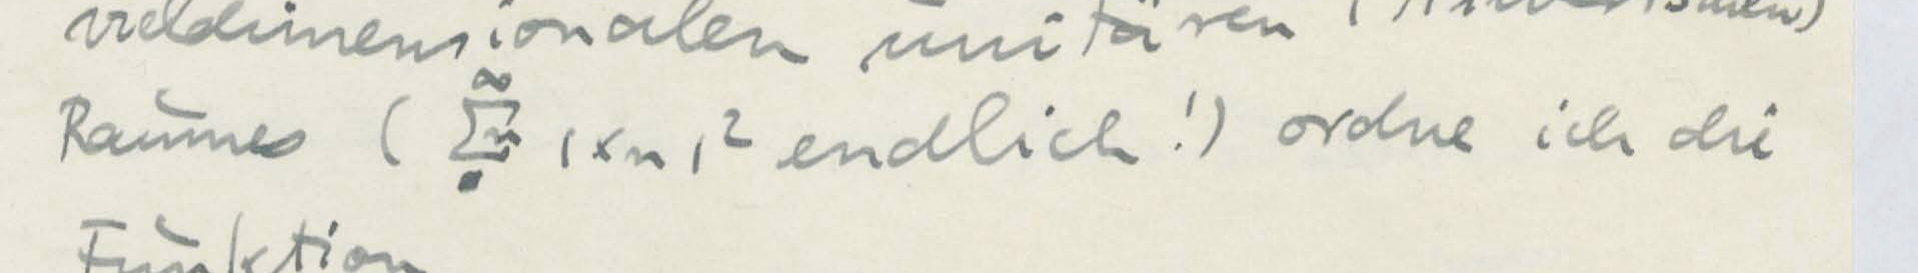 vieldimensionalen unitären (Hilbertschen)
Raumes ( ∞∑n |xn|² endlich!) ordne ich die
Funktion